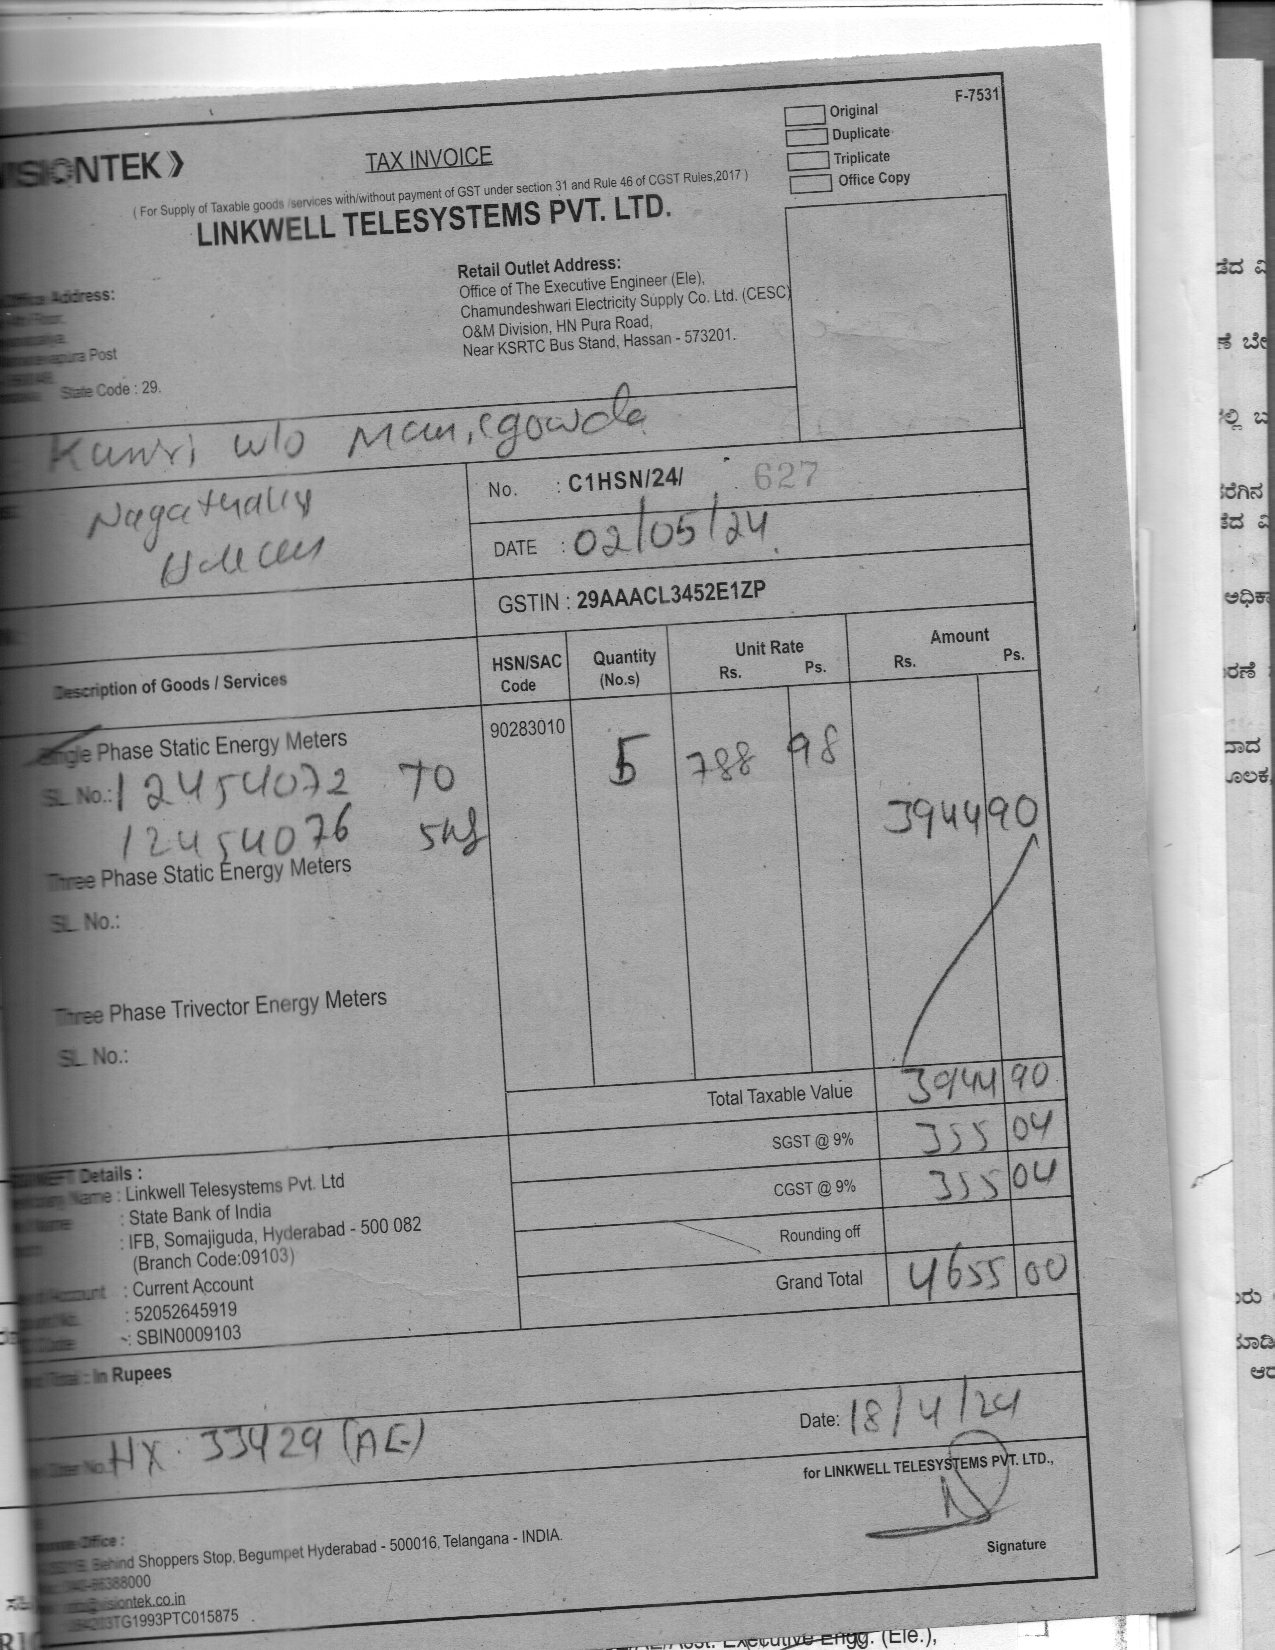 F-7531
Original
Duplicate
Triplicate
Office Copy
VISIONTEK
TAX INVOICE
( For Supply of Taxable goods /services with/without payment of GST under section 31 and Rule 46 of CGST Rules,2017 )
LINKWELL TELESYSTEMS PVT. LTD.
Office Address:
Post
State Code : 29.
Retail Outlet Address:
Office of The Executive Engineer (Ele),
Chamundeshwari Electricity Supply Co. Ltd. (CESC)
O&M Division, HN Pura Road,
Near KSRTC Bus Stand, Hassan - 573201.
w/o
No. : C1HSN/24/ 627
DATE : 02/05/24
GSTIN : 29AAACL3452E1ZP
Description of Goods / Services HSN/SAC Code Quantity (No.s) Unit Rate Rs. Ps. Amount Rs. Ps.
Single Phase Static Energy Meters 90283010 5 788 98
SL. No.: 12454072 TO 3944 90
12454076
Three Phase Static Energy Meters
SL. No.:
Three Phase Trivector Energy Meters
SL. No.:
Total Taxable Value 3944 90
SGST @ 9% 355 04
CGST @ 9% 355 04
Rounding off
Grand Total 4655 00
Details :
Name : Linkwell Telesystems Pvt. Ltd
Name : State Bank of India
: IFB, Somajiguda, Hyderabad - 500 082
(Branch Code:09103)
Account : Current Account
: 52052645919
: SBIN0009103
Total : In Rupees
No. HX. 33429 (AE)
Date: 18/4/24
for LINKWELL TELESYSTEMS PVT. LTD.,
Signature
Office :
Behind Shoppers Stop, Begumpet Hyderabad - 500016, Telangana - INDIA.
TG1993PTC015875
Executive Engg. (Ele.),